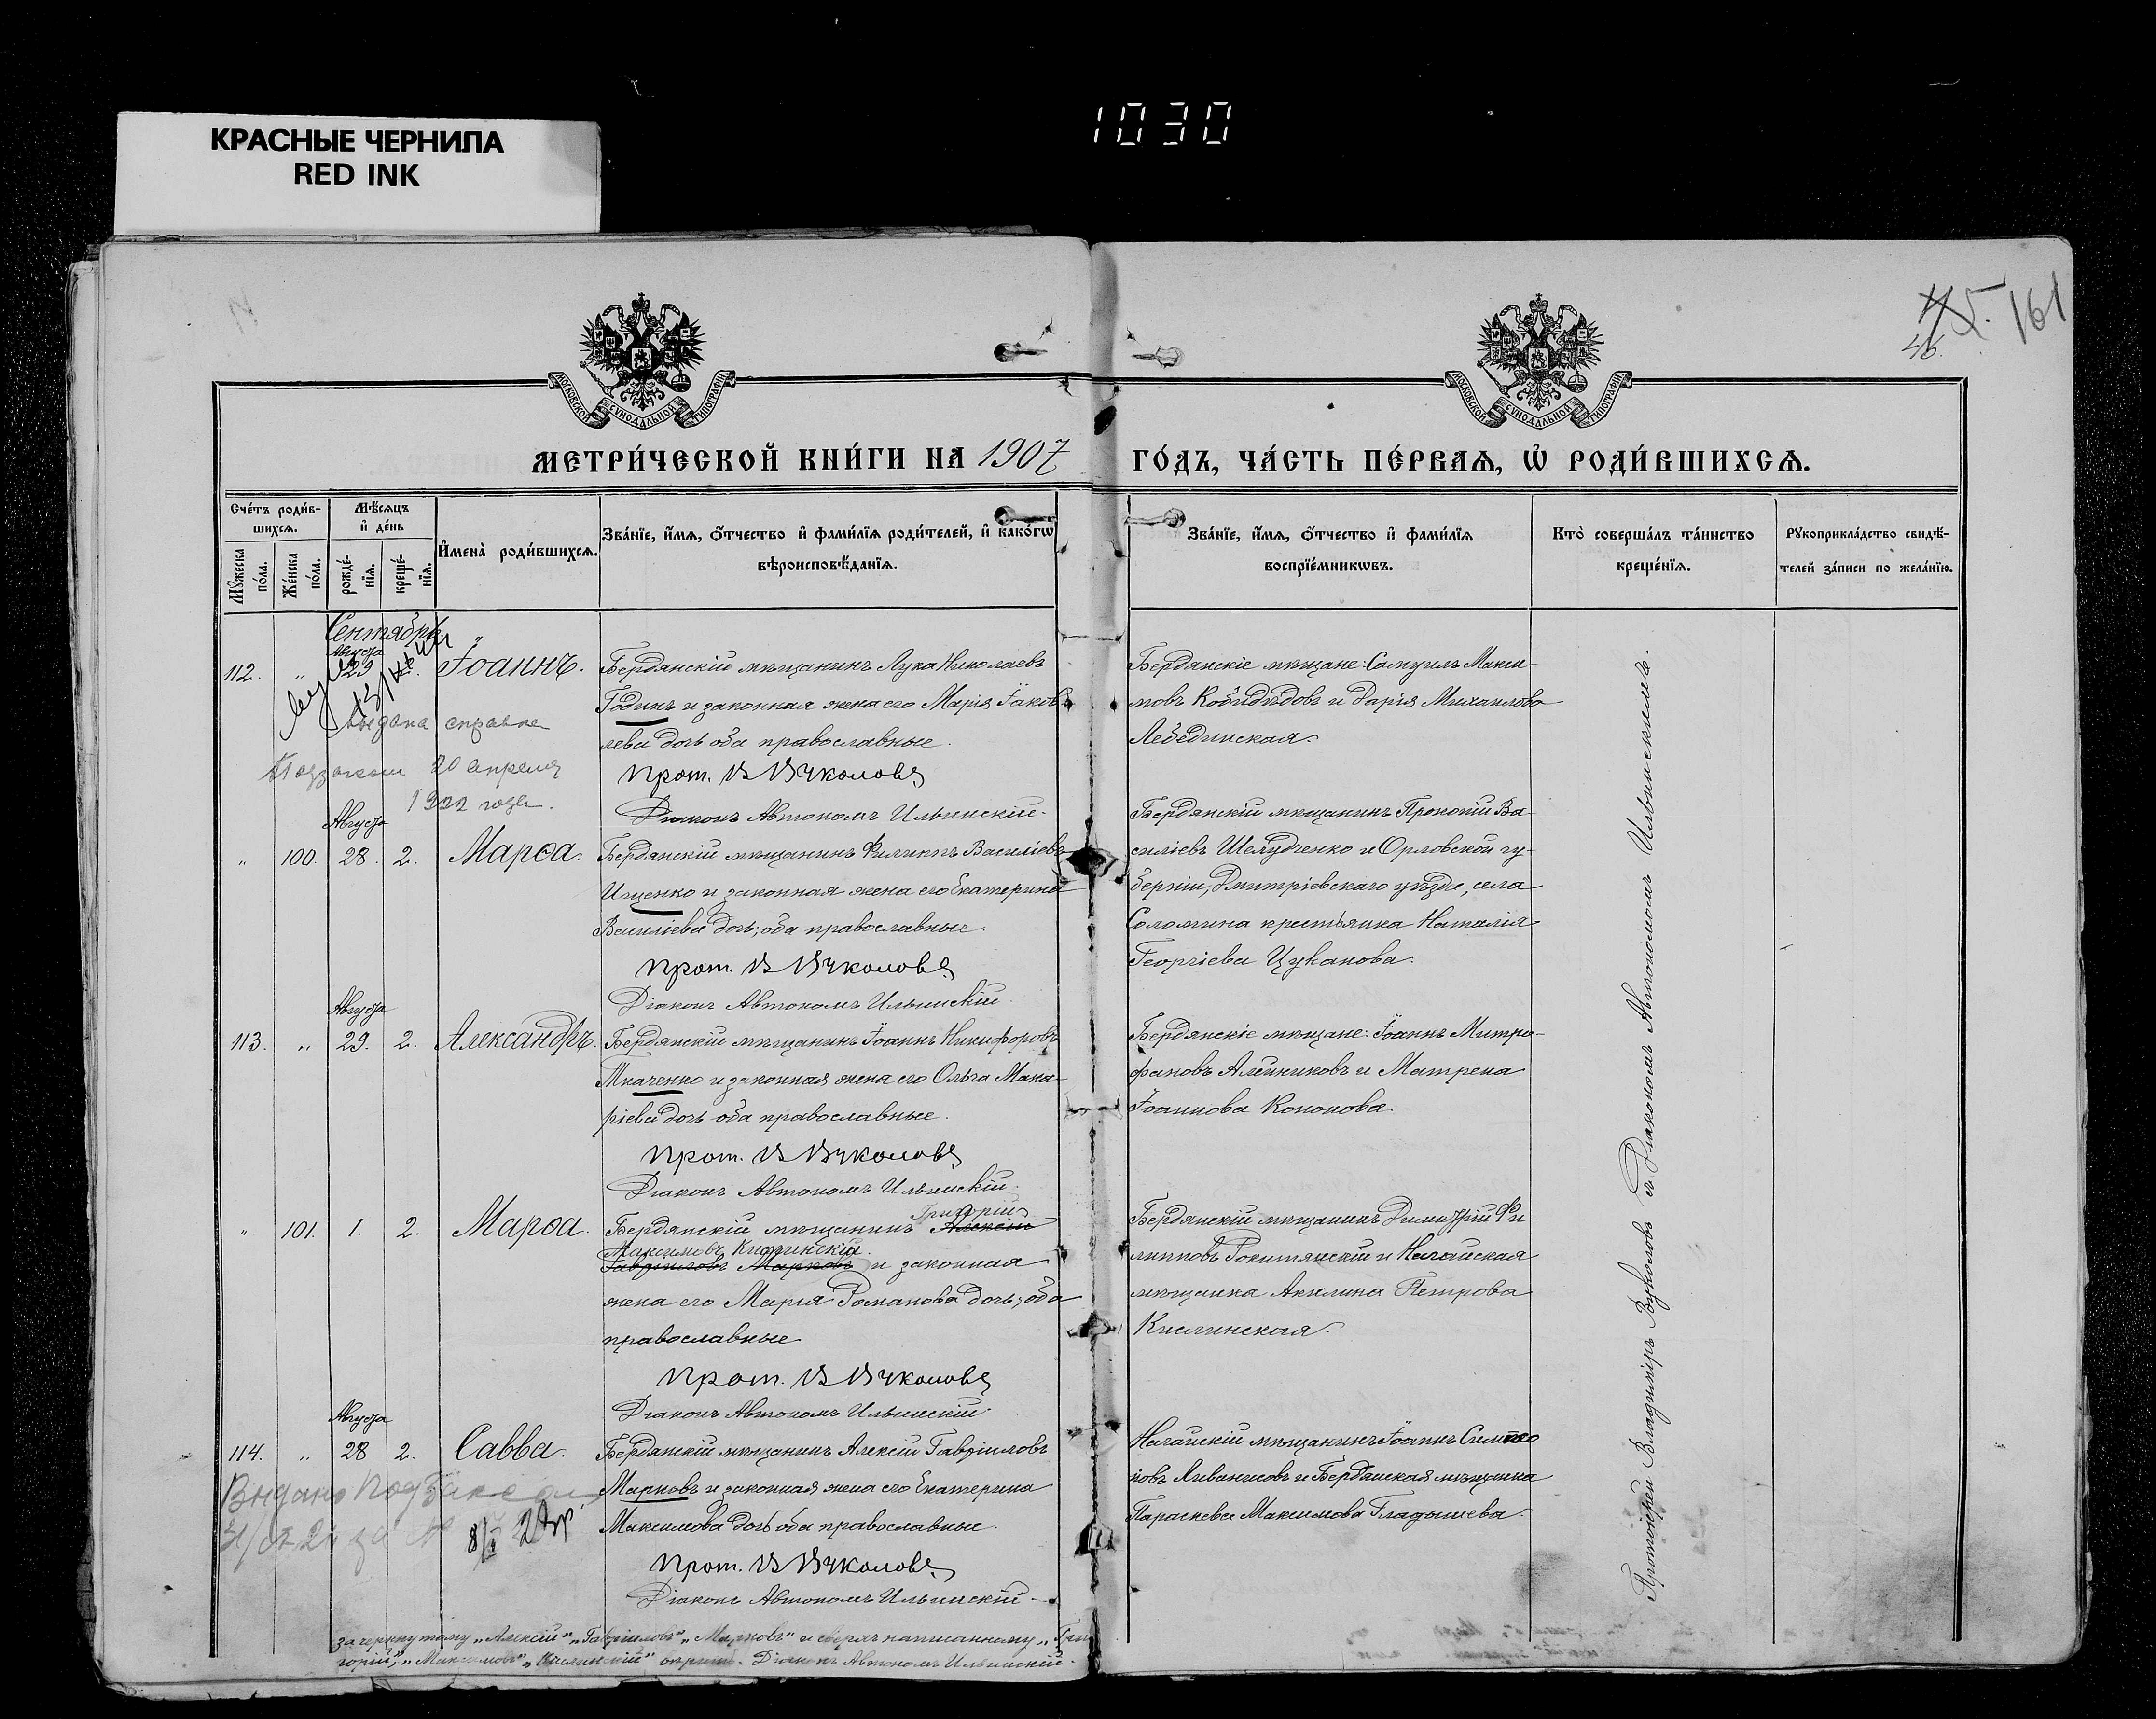 КРАСНЫЕ ЧЕРНИЛА
RED INK
1030
161
46.
МОСКОВСКОЙ СѴНОДАЛЬНОЙ ТИПОГРАФІИ
МОСКОВСКОЙ СѴНОДАЛЬНОЙ ТИПОГРАФІИ
МЕТРИ́ЧЕСКОЙ КНИ́ГИ НА 1907
ГО́ДЪ, ЧА́СТЬ ПЕ́РВАѦ, Ѡ҆ РОДИ́ВШИХСѦ.
Сче́тъ роди́в-
шихсѧ.
Мꙋ́жеска по́ла.
Же́нска по́ла.
Мѣ́сѧцъ
и҆ де́нь
рожде́-
нїѧ.
креще́-
нїѧ.
И҆мена̀ роди́вшихсѧ.
Зва́нїе, и҆́мѧ, ѻ҆́тчество и҆ фами́лїѧ роди́телей, и҆ како́гѡ
вѣроисповѣ́данїѧ.
Зва́нїе, и҆́мѧ, ѻ҆́тчество и҆ фами́лїѧ
воспрїе́мникѡвъ.
Кто̀ соверша́лъ та́инство
креще́нїѧ.
Рꙋкоприкла́дство свидѣ́-
телей за́писи по жела́нїю.
Сентябрь
Августа
112. „ 29 Іоаннъ. Бердянскій мѣщанинъ Лука Николаевъ
Годинъ и законная жена его Марія Іаков-
лева дочь оба православные.
Прот. В Вуколовъ
Діаконъ Автономъ Ильинскій.
Выдана справка
20 апреля
1922 года.
Бердянскіе мѣщане: Самуилъ Макси-
мовъ Кобидѣдовъ и Дарія Михаилова
Лебединская.
Августа
„ 100. 28. 2. Марѳа. Бердянскій мѣщанинъ Филиппъ Василіевъ
Ищенко и законная жена его Екатерина
Василіева дочь; оба православные.
Прот. В Вуколовъ
Діаконъ Автономъ Ильинскій.
Бердянскій мѣщанинъ Прокопій Ва-
силіевъ Шелудченко и Орловской гу-
берніи, Дмитріевскаго уѣзда, села
Соломина крестьянка Наталія
Георгіева Цуканова.
Августа
113. „ 29. 2. Александръ. Бердянскій мѣщанинъ Іоаннъ Никифоровъ
Ткаченко и законная жена его Ольга Мака-
ріева дочь оба православные.
Прот. В Вуколовъ
Діаконъ Автономъ Ильинскій.
Бердянскіе мѣщане: Іоаннъ Митро-
фановъ Алейниковъ и Матрена
Іоаннова Кононова.
Григорій
„ 101. 1. 2. Марѳа. Бердянскій мѣщанинъ Алексій
Максимовъ Кислинскій.
Гавріиловъ Марковъ и законная
жена его Марія Романова дочь; оба
православные
Прот. В Вуколовъ
Діаконъ Автономъ Ильинскій.
Бердянскій мѣщанинъ Димитрій Фи-
липповъ Рокитянскій и Ногайская
мѣщанка Акилина Петрова
Кислинская.
Августа
114. „ 28 2. Савва. Бердянскій мѣщанинъ Алексій Гавріиловъ
Марковъ и законная жена его Екатерина
Максимова дочь оба православные.
Прот. В Вуколовъ
Діаконъ Автономъ Ильинскій
Выдано
Ногайскій мѣщанинъ Іоаннъ Симео
новъ Ливанисовъ и Бердянская мѣщанка
Параскева Максимова Гладышева.
Протоіерей Владиміръ Вуколовъ съ Діакономъ Автономомъ Ильинскимъ.
зачеркнутому „Алексій” „Гавріиловъ” „Марковъ” и сверхъ написанному „Гри
горій”, „Максимовъ” „Кислинскій” Діаконъ Автономъ Ильинскій.